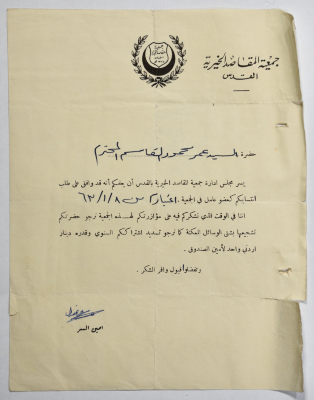 جمعية المقاصد الخيرية
القدس
حضرة السيد عمر محمود القاسم المحترم
يسر مجلس ادارة جمعية المقاصد الخيرية بالقدس أن يعلمكم أنه قد وافق على طلب
انتسابكم كعضو عامل في الجمعية . اعتبارا من ٦٣/١/٨
اننا في الوقت الذي نشكركم فيه على مؤازرتكم لهذه الجمعية نرجو حضرتكم
تشجيعها بشتى الوسائل الممكنة كما نرجو تسديد اشتراككم السنوي وقدره دينار
اردني واحد لأمين الصندوق .
وتفضلوا بقبول وافر الشكر .
امين السر